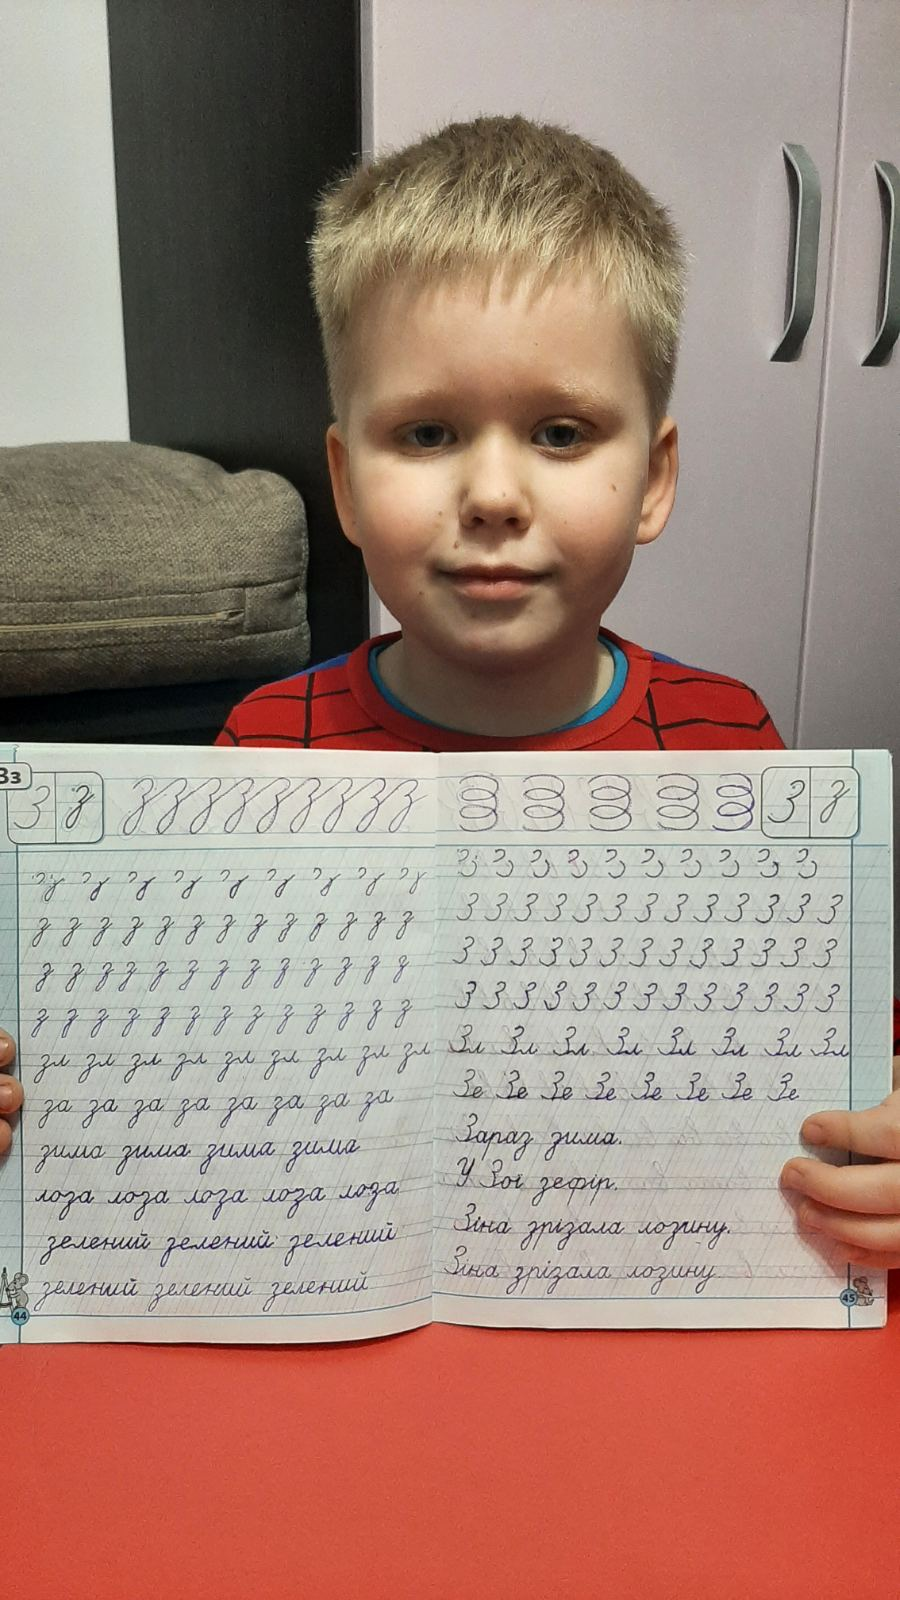 Зз
З з
з з з з з з з з з
з з з з з з з з з
з з з з з з з з з з з з з
з з з з з з з з з з з з з
з з з з з з з з з з з з з
зл зл зл зл зл зл зл зл зл
за за за за за за за за
зима зима зима зима
лоза лоза лоза лоза лоза
зелений зелений зелений
зелений зелений зелений
44
З з
З З З З З З З З З З
З З З З З З З З З З З З З
З З З З З З З З З З З З З
З З З З З З З З З З З З З
Зл Зл Зл Зл Зл Зл Зл Зл
Зе Зе Зе Зе Зе Зе Зе Зе
Зараз зима.
У Зої зефір.
Зіна зрізала лозину.
Зіна зрізала лозину
45